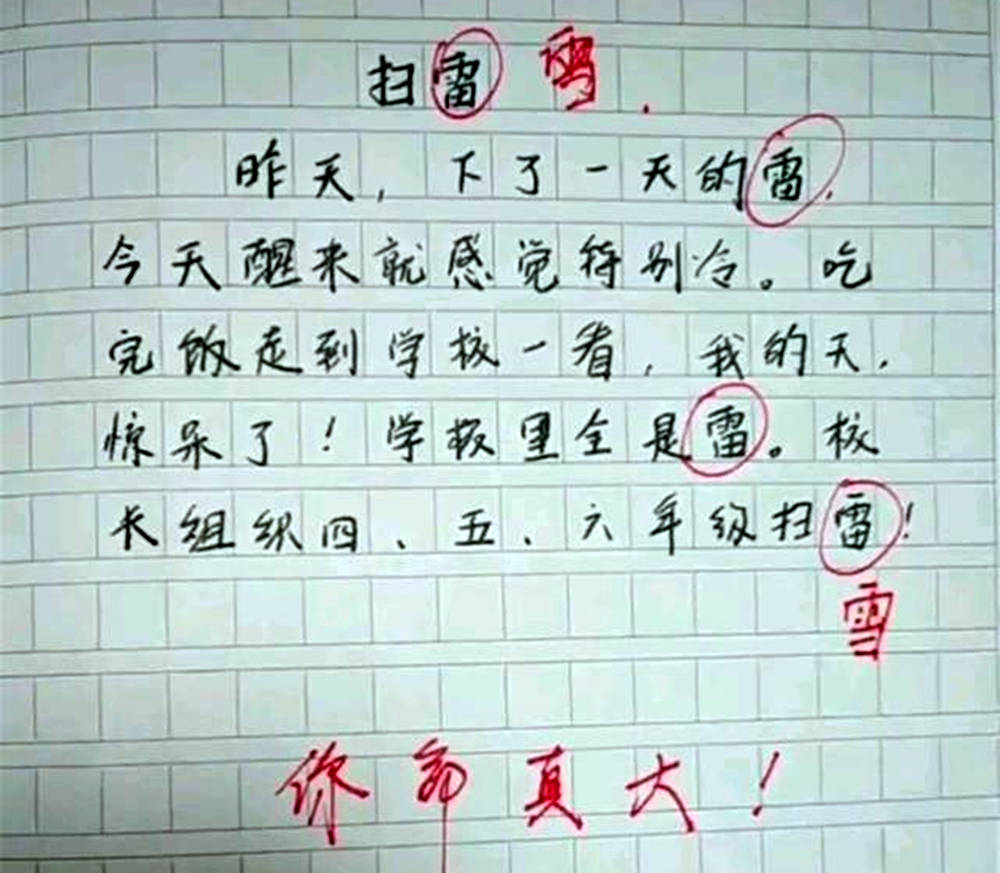 扫雷 雪.
昨天，下了一天的雷，
今天醒来就感觉特别冷。吃
完饭走到学校一看，我的天，
惊呆了！学校里全是雷。校
长组织四、五、六年级扫雷！
雪
你命真大！